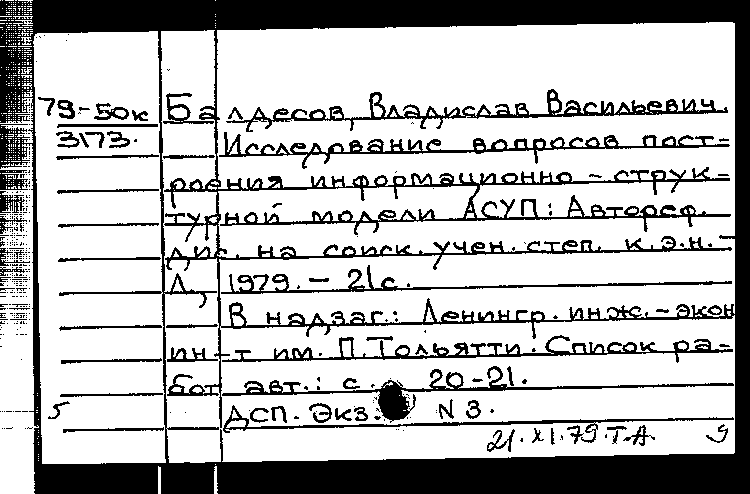 79-50к Балдесов, Владислав Васильевич.
3173. Исследование вопросов пост=
роения информационно-струк=
турной модели АСУП: Автореф.
дис. на соиск. учен. степ. к.э.н. -
Л., 1979. - 21с.
В надзаг.: Ленингр. инж.-экон
ин-т им. П. Тольятти. Список ра-
бот авт.: с. 20-21.
5 ДСП. Экз. N 3.
21.XI.79.Т.А. 9